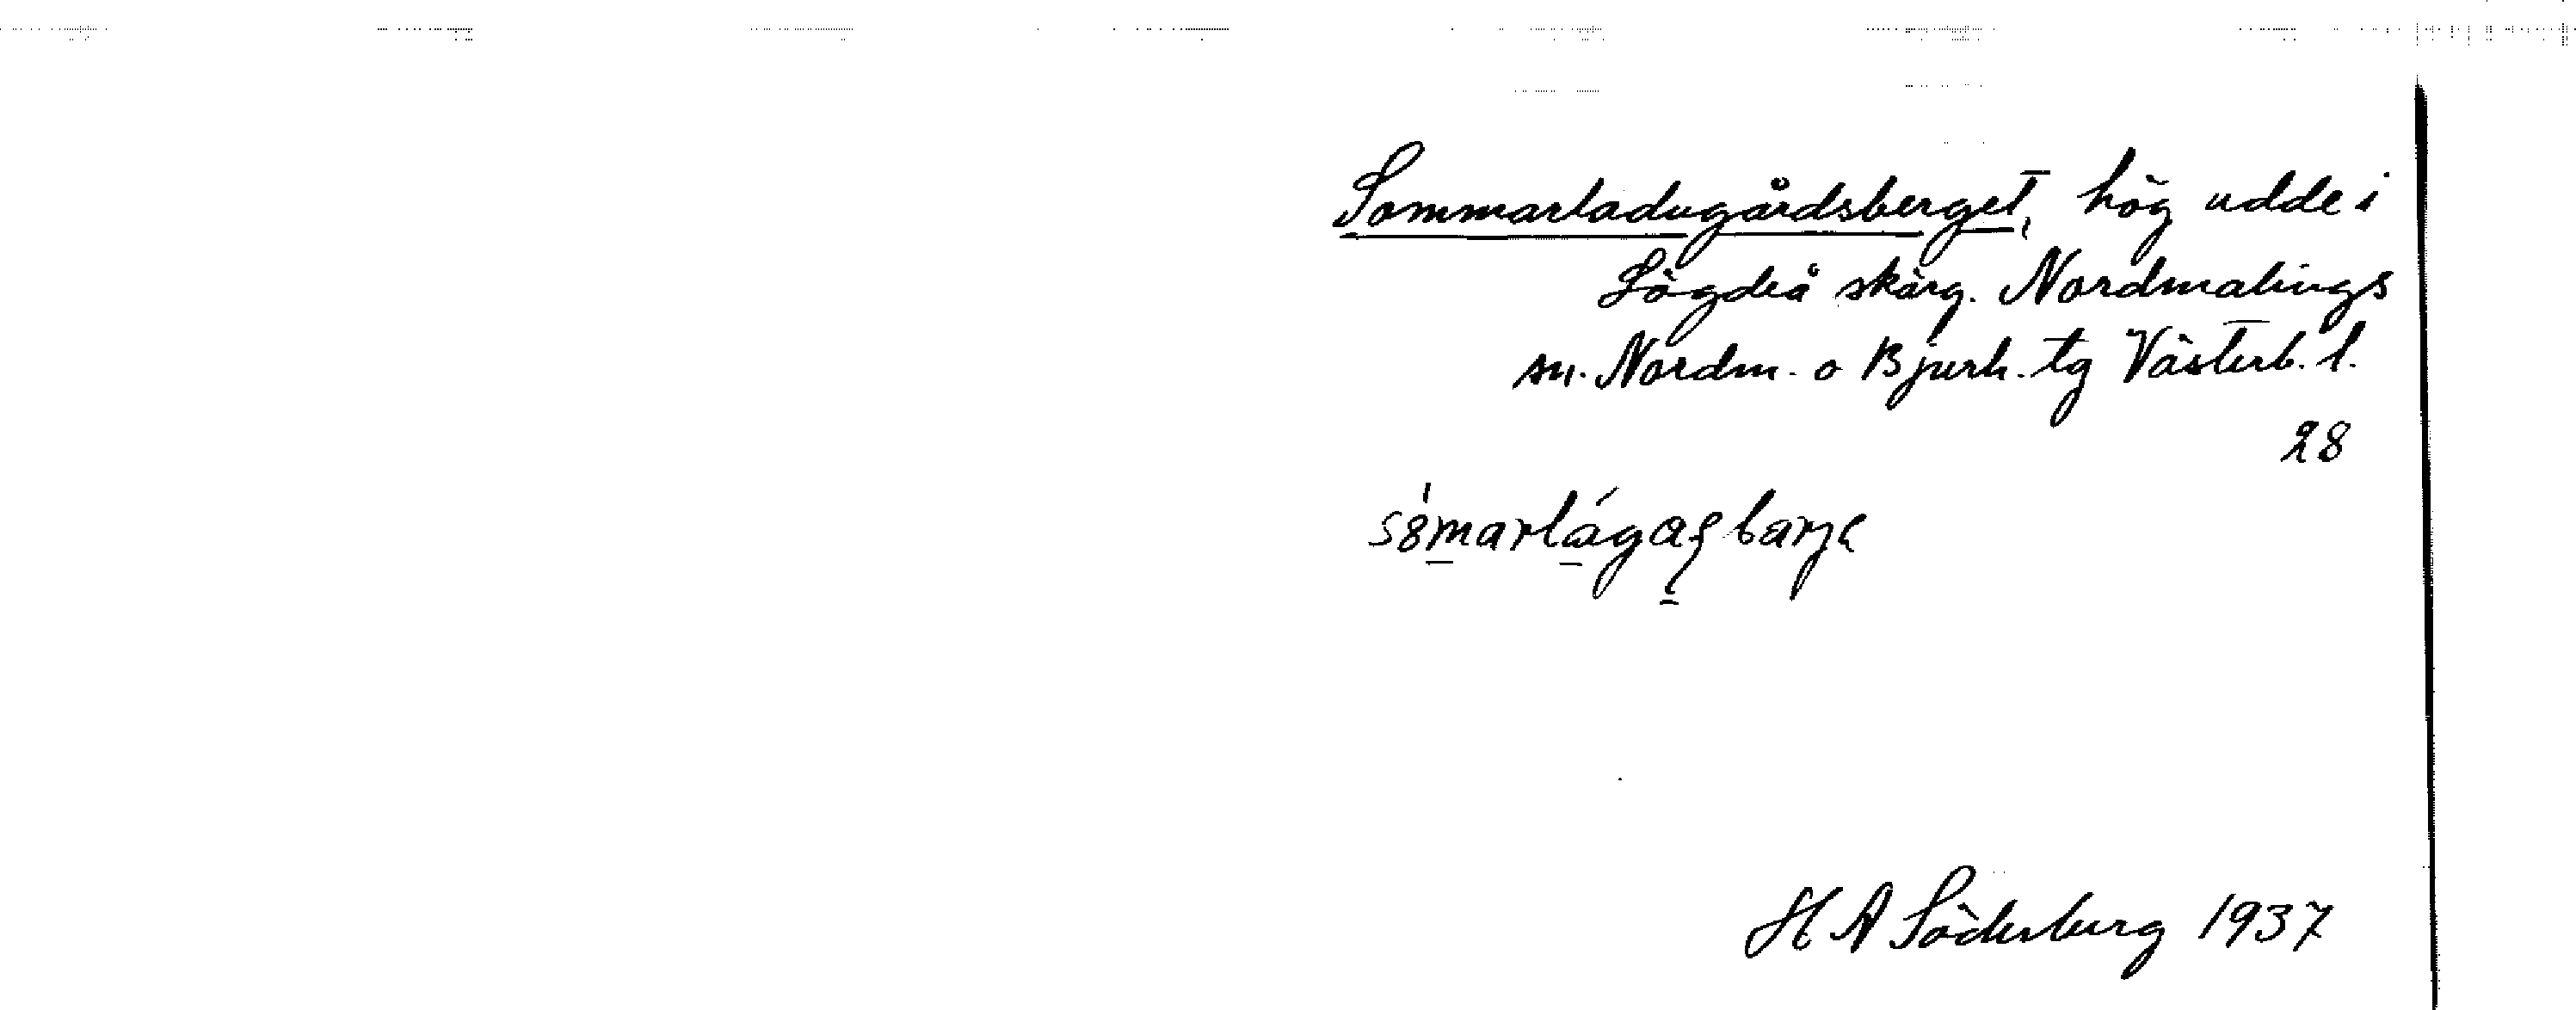 Sommarladugårdsberget, hög udde i
Lögdeå skärg. Nordmalings
sn. Nordm. o Bjurh. tg Västerb. l.
28
H A Söderberg 1937